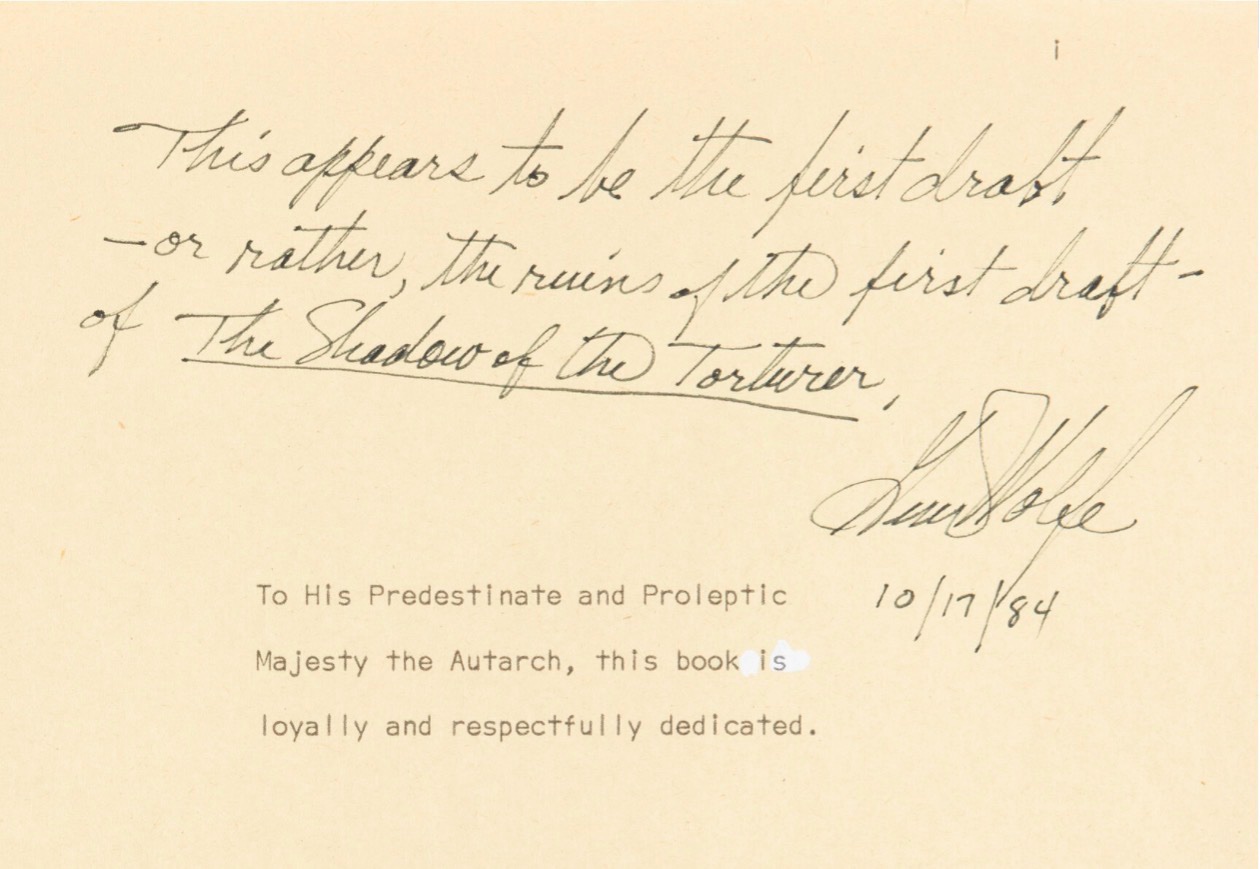 i
This appears to be the first draft
—or rather, the ruins of the first draft—
of The Shadow of the Torturer,
Gene Wolfe
10/17/84
To His Predestinate and Proleptic
Majesty the Autarch, this book is
loyally and respectfully dedicated.